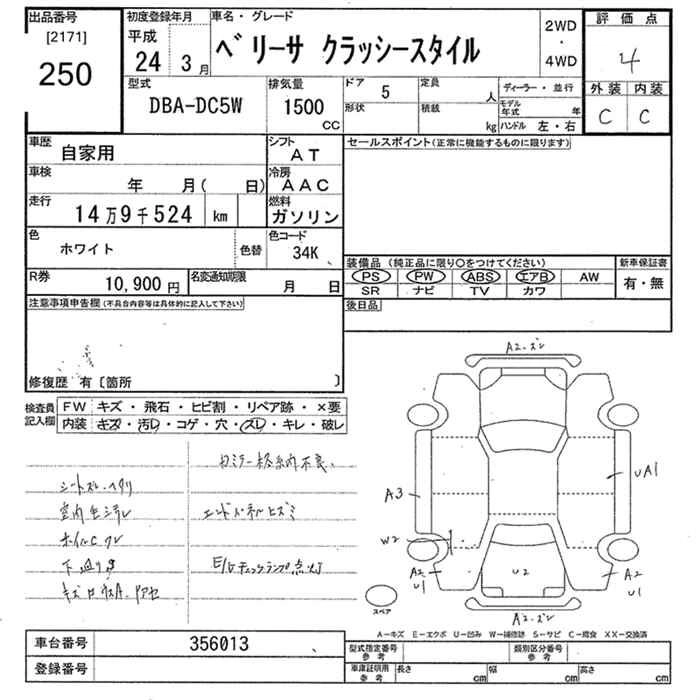 出品番号
[2171]
250
初度登録年月
平成
24年 3月
車名・グレード
ベリーサ クラッシースタイル
2WD
・
4WD
評価点
4
外装 内装
C C
型式
DBA-DC5W
排気量
1500
CC
ドア 5
形状
定員 人
積載 kg
ディーラー・並行
モデル年式 年
ハンドル 左・右
車歴 自家用
シフト AT
車検 年 月( 日)
冷房 AAC
走行 14万9千524 km
燃料 ガソリン
色 ホワイト
色替
色コード 34K
R券 10,900円
名変通知期限 月 日
セールスポイント(正常に機能するものに限ります)
装備品 (純正品に限り○をつけてください)
新車保証書
PS PW ABS エアB AW
有・無
SR ナビ TV カワ
後日品
注意事項申告欄(不具合内容等は具体的に記入して下さい)
修復歴 有〔箇所 〕
検査員記入欄
FW キズ・飛石・ヒビ割・リペア跡・×要
内装 キズ・汚レ・コゲ・穴・スレ・キレ・破レ
カミラー格納不良
シートスレ・ヘタリ
エンドパネルヒズミ
E/Gチェックランプ点灯
A2・ズレ
A3
UA1
W2
A2
U1
U2
A2
U1
A2・ズレ
スペア
A-キズ E-エクボ U-凹み W-補修跡 S-サビ C-腐食 XX-交換済
車台番号 356013
登録番号
型式指定番号
参考
類別区分番号
参考
車庫証明用
参考
長さ cm 幅 cm 高さ cm